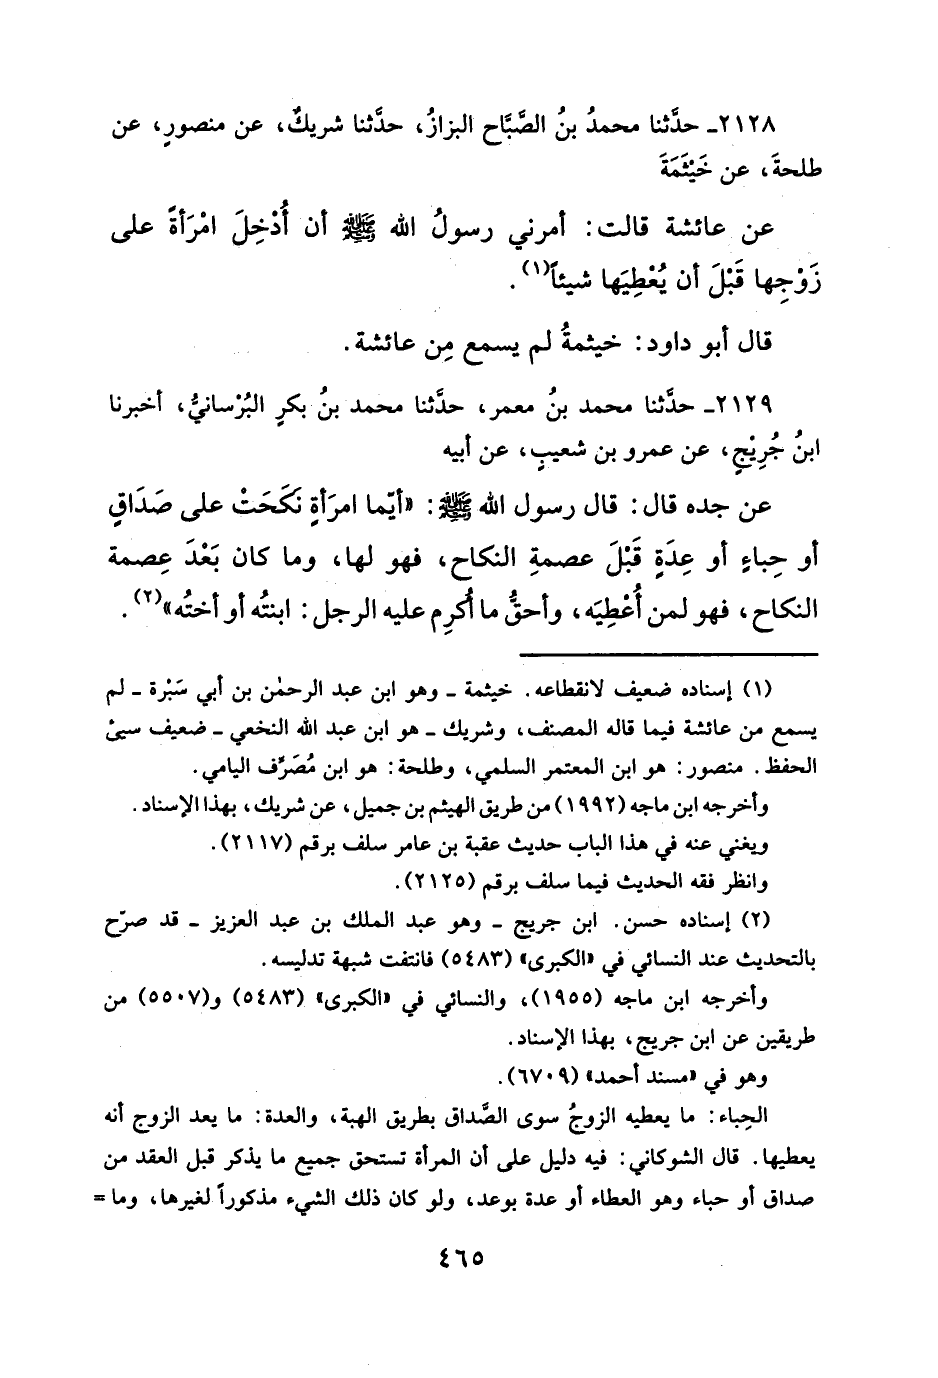 ٢١٢٨ـ حدَّثنا محمدُ بنُ الصَّبَّاح البزازُ، حدَّثنا شريكٌ، عن منصورٍ، عن
طلحةَ، عن خَيْثَمَةَ
عن عائشة قالت: أمرني رسولُ الله ﷺ أن أُدْخِلَ امْرَأةً على
زَوْجِها قَبْلَ أن يُعْطِيَها شيئاً(١).
قال أبو داود: خيثمةُ لم يسمع مِن عائشة.
٢١٢٩ـ حدَّثنا محمد بنُ معمر، حدَّثنا محمد بنُ بكرٍ البُرْسانيُّ، أخبرنا
ابنُ جُرِيْجٍ، عن عمرو بن شعيبٍ، عن أبيه
عن جده قال: قال رسول الله ﷺ: «أيّما امرَأةٍ نَكَحَتْ على صَدَاقٍ
أو حِباءٍ أو عِدَةٍ قَبْلَ عصمةِ النكاح، فهو لها، وما كان بَعْدَ عِصمة
النكاح، فهو لمن أُعْطِيَه، وأحقُّ ما أُكرِم عليه الرجل: ابنتُه أو أختُه»(٢).
(١) إسناده ضعيف لانقطاعه. خيثمة ـ وهو ابن عبد الرحمٰن بن أبي سَبْرة ـ لم
يسمع من عائشة فيما قاله المصنف، وشريك ـ هو ابن عبد الله النخعي ـ ضعيف سيئ
الحفظ. منصور: هو ابن المعتمر السلمي، وطلحة: هو ابن مُصَرِّف اليامي.
وأخرجه ابن ماجه (١٩٩٢) من طريق الهيثم بن جميل، عن شريك، بهذا الإسناد.
ويغني عنه في هذا الباب حديث عقبة بن عامر سلف برقم (٢١١٧).
وانظر فقه الحديث فيما سلف برقم (٢١٢٥).
(٢) إسناده حسن. ابن جريج ـ وهو عبد الملك بن عبد العزيز ـ قد صرّح
بالتحديث عند النسائي في «الكبرى» (٥٤٨٣) فانتفت شبهة تدليسه.
وأخرجه ابن ماجه (١٩٥٥)، والنسائي في «الكبرى» (٥٤٨٣) و(٥٥٠٧) من
طريقين عن ابن جريج، بهذا الإسناد.
وهو في «مسند أحمد» (٦٧٠٩).
الحِباء: ما يعطيه الزوجُ سوى الصَّداق بطريق الهبة، والعدة: ما يعد الزوج أنه
يعطيها. قال الشوكاني: فيه دليل على أن المرأة تستحق جميع ما يذكر قبل العقد من
صداق أو حباء وهو العطاء أو عدة بوعد، ولو كان ذلك الشيء مذكوراً لغيرها، وما =
٤٦٥